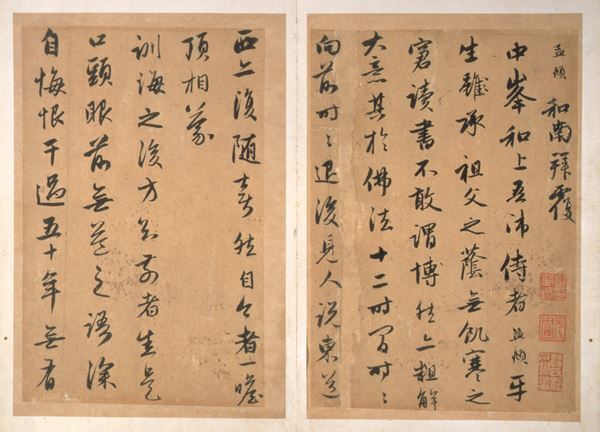 孟頫和南拜覆
中峯和上吾師侍者孟頫平
生雖承祖父之蔭無飢寒之
窘讀書不敢謂博然亦粗解
大意其於佛法十二時間時〻
向前時〻退後見人說東道
西亦復隨喜然自今者一瞻
頂相蒙
訓誨之後方知前者生是
口頭眼前無益之語深
自悔恨干過五十年無有